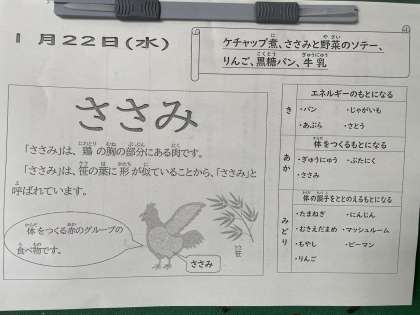 1月22日(水)
ケチャップ煮、ささみと野菜のソテー、
りんご、黒糖パン、牛乳
ささみ
「ささみ」は、鶏の胸の部分にある肉です。
「ささみ」は、笹の葉に形が似ていることから、「ささみ」と
呼ばれています。
体をつくる赤のグループの
食べ物です。
ささみ
笹
き
エネルギーのもとになる
・パン ・じゃがいも
・あぶら ・さとう
あか
体をつくるもとになる
・ぎゅうにゅう ・ぶたにく
・ささみ
みどり
体の調子をととのえるもとになる
・たまねぎ ・にんじん
・むきえだまめ ・マッシュルーム
・もやし ・ピーマン
・りんご